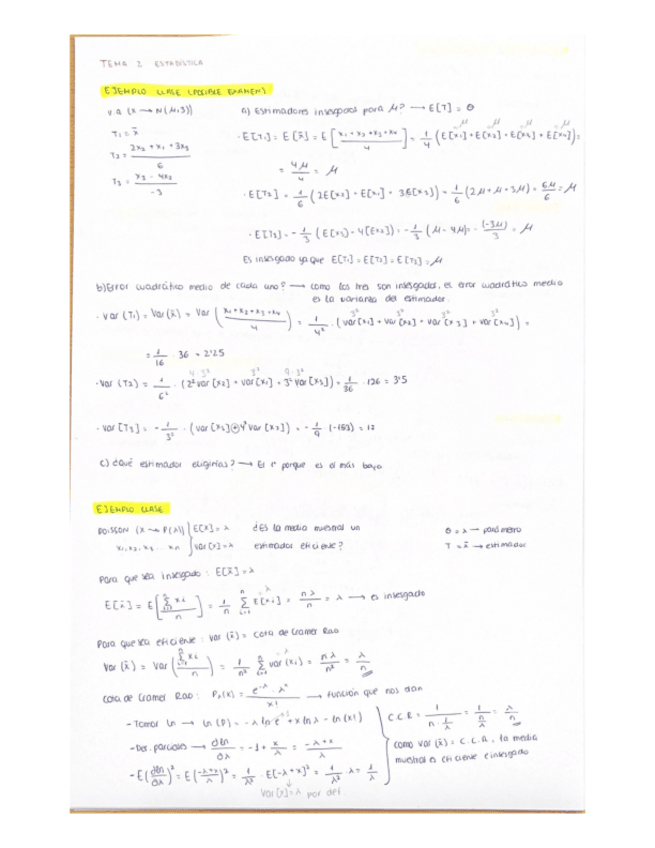 TEMA 2 ESTADÍSTICA
EJEMPLO CLASE (POSIBLE EXAMEN)
v.a (X → N(μ,3))
T₁ = x̄
T₂ = (2x₂ + x₁ + 3x₃) / 6
T₃ = (x₃ - 4x₂) / -3
a) Estimadores insesgados para μ? → E[T] = θ
· E[T₁] = E[x̄] = E[(x₁ + x₂ + x₃ + x₄) / 4] = 1/4 (E[x₁] + E[x₂] + E[x₃] + E[x₄]) =
= 4μ/4 = μ
· E[T₂] = 1/6 (2E[x₂] + E[x₁] + 3E[x₃]) = 1/6 (2μ + μ + 3μ) = 6μ/6 = μ
· E[T₃] = -1/3 (E[x₃] - 4[E x₂]) = -1/3 (μ - 4μ) = - (-3μ)/3 = μ
Es insesgado ya que E[T₁] = E[T₂] = E[T₃] = μ
b) Error cuadrático medio de cada uno? → como los tres son insesgados, el error cuadrático medio
es la varianza del estimador.
· Var (T₁) = Var (x̄) = Var ((x₁ + x₂ + x₃ + x₄) / 4) = 1/4² · (var [x₁] + var [x₂] + var [x₃] + var [x₄]) =
= 1/16 · 36 = 2'25
· Var (T₂) = 1/6² · (2² var [x₂] + var [x₁] + 3² var [x₃]) = 1/36 · 126 = 3'5
· Var [T₃] = -1/3² · (var [x₃] ⊕ 4² var [x₂]) = -1/9 · (-153) = 17
c) ¿Qué estimador eligirías? → El 1º porque es el más bajo
EJEMPLO CLASE
POISSON (X → P(λ)) E[X] = λ ¿Es la media muestral un
x₁, x₂, x₃ ... xn Var [x] = λ estimador eficiente?
θ = λ → parámetro
T = x̄ → estimador
Para que sea insesgado : E[x̄] = λ
E[x̄] = E[Σxi / n] = 1/n Σ E[xi] = nλ/n = λ → es insesgado
Para que sea eficiente : var (x̄) = cota de Cramer Rao
Var (x̄) = Var (Σxi / n) = 1/n² Σ var (xi) = nλ/n² = λ/n
Cota de Cramer Rao : Pλ(x) = e^-λ · λ^x / x! → función que nos dan
- Tomar ln → ln (P) = -λ ln e + x ln λ - ln (x!)
- Der. parciales → dln/dλ = -1 + x/λ = (-λ + x)/λ
- E(dln/dλ)² = E((-λ+x)/λ)² = 1/λ² · E[-λ + x]² = 1/λ² · λ = 1/λ
Var [x] = λ por def
C.C.R = 1/(n · 1/λ) = 1/(n/λ) = λ/n
como Var (x̄) = C.C.R, la media
muestral es eficiente e insesgado